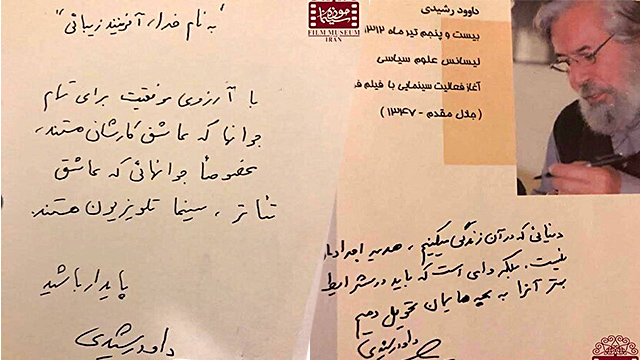 "به نام خدا، آفرینندۀ زیبائی"
با آرزوی موفقیت برای تمام
جوانها که عاشق کارشان هستند،
بخصوصاً جوانهائی که عاشق
تئاتر، سینما تلویزیون هستند.
پایدار باشید
داود رشیدی
موزه سینما
FILM MUSEUM
IRAN
داوود رشیدی
بیست و پنجم تیر ماه ۱۳۱۲
لیسانس علوم سیاسی
آغاز فعالیت سینمایی با فیلم فر
(جلال مقدم - ۱۳۴۷)
دنیائی که در آن زندگی میکنیم، هدیه اجدادمان
نیست. بلکه وامی است که باید در شرایط
بهتر آنرا به بچه هایمان تحویل دهیم
داود رشیدی